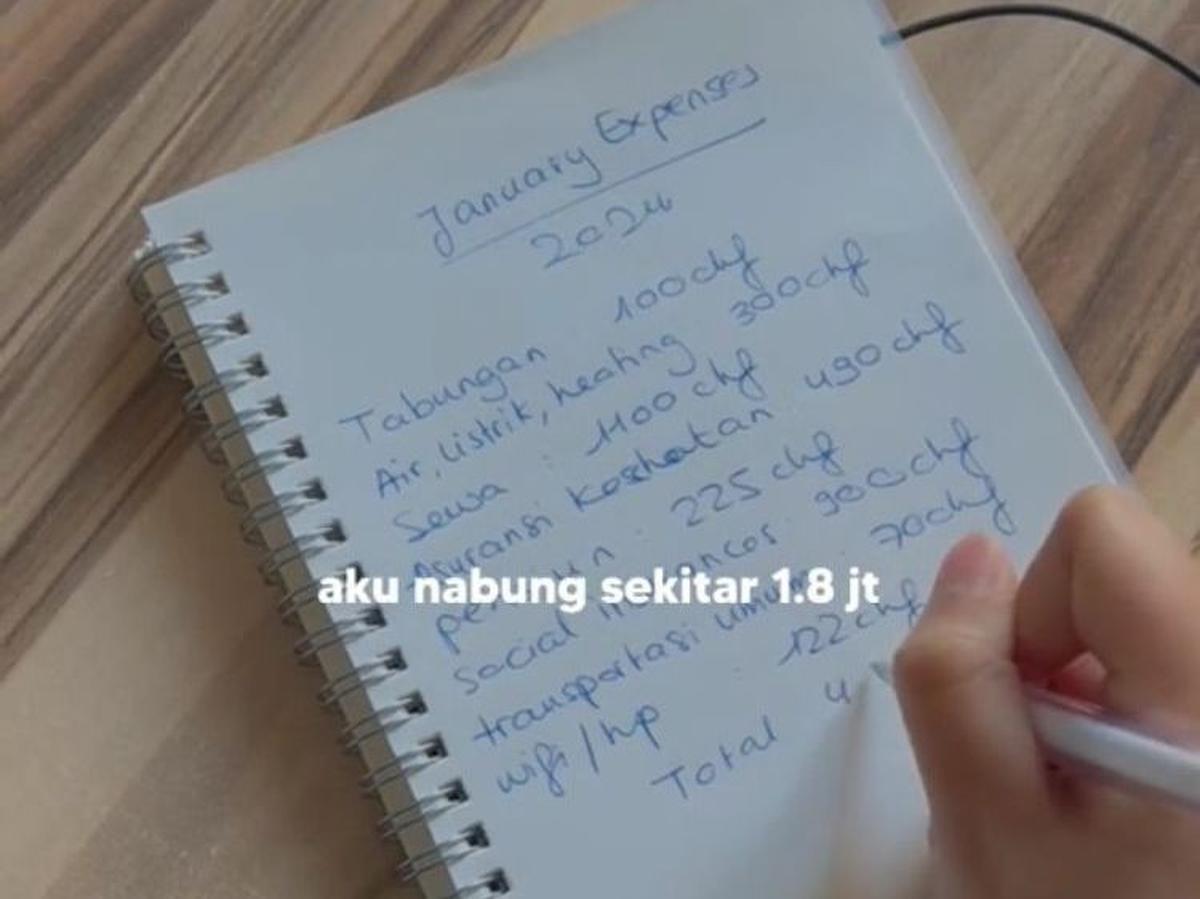 January Expenses
2024
Tabungan 100chf
Air, listrik, heating 300chf
Sewa : 1100 chf
Asuransi Keshatan 490 chf
: 225 chf
aku nabung sekitar 1.8 jt
Social 900chf
transportasi umum 70chf
wifi/hp : 122chf
Total 4